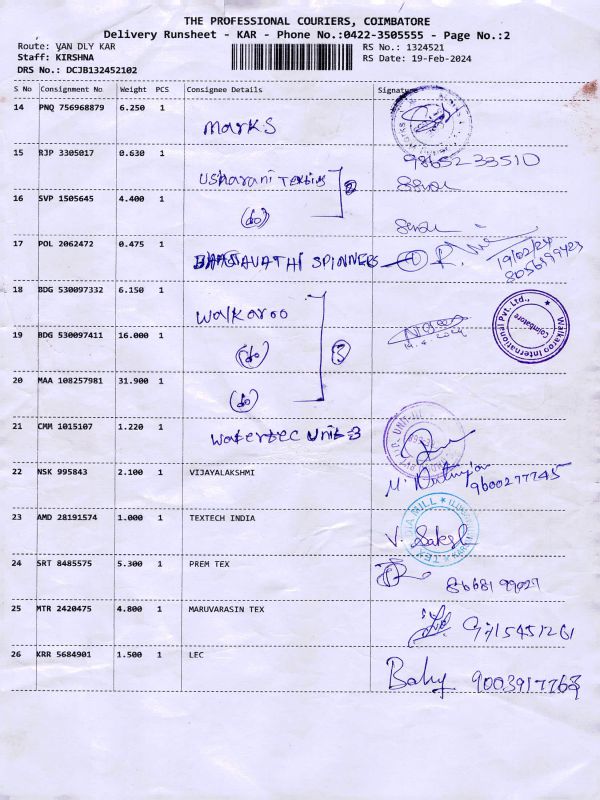 THE PROFESSIONAL COURIERS, COIMBATORE
Delivery Runsheet - KAR - Phone No.:0422-3505555 - Page No.:2
Route: VAN DLY KAR
RS No.: 1324521
Staff: KIRSHNA
RS Date: 19-Feb-2024
DRS No.: DCJB132452102
S No Consignment No Weight PCS Consignee Details Signature
14 PNQ 756968879 6.250 1 Marks
15 RJP 3305017 0.630 1 Usharani Textiles 2 9865233510
16 SVP 1505645 4.400 1 (do)
17 POL 2062472 0.475 1 BHAGAVATHI SPINNERS 1 19/02/24
8056199423
18 BDG 530097332 6.150 1 Walkaroo Walkaroo International Pvt. Ltd., Coimbatore
19 BDG 530097411 16.000 1 (do) 3
20 MAA 108257981 31.900 1 (do)
21 CMM 1015107 1.220 1 Watertec Unit-3
22 NSK 995843 2.100 1 VIJAYALAKSHMI 9600277745
23 AMD 28191574 1.000 1 TEXTECH INDIA V. Sakthi
24 SRT 8485575 5.300 1 PREM TEX 8668199027
25 MTR 2420475 4.800 1 MARUVARASIN TEX 9715451261
26 KRR 5684901 1.500 1 LEC Baby 9003917763